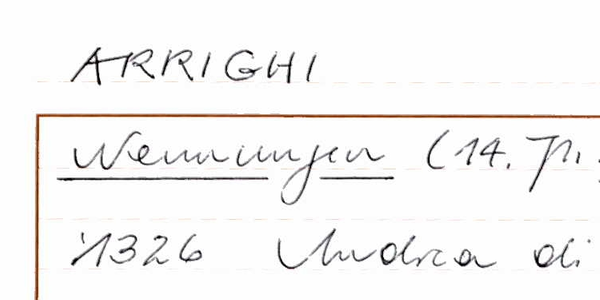 ARRIGHI
Nennungen (14. Jh.
1326 Andrea di